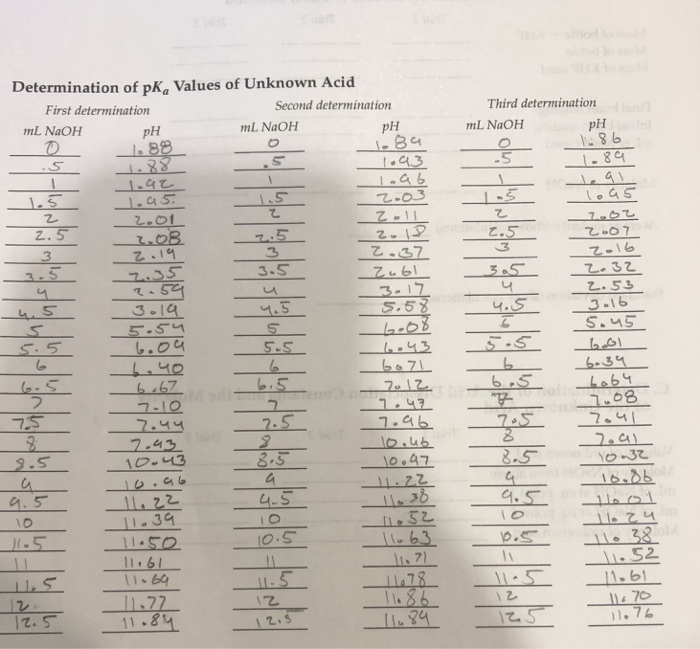 Determination of pKa Values of Unknown Acid
First determination Second determination Third determination
mL NaOH pH mL NaOH pH mL NaOH pH
0 1.88 0 1.89 0 1.86
.5 1.88 .5 1.93 .5 1.89
1 1.92 1 1.96 1 1.91
1.5 1.95 1.5 2.03 1.5 1.95
2 2.01 2 2.11 2 2.02
2.5 2.08 2.5 2.18 2.5 2.07
3 2.19 3 2.37 3 2.16
3.5 2.35 3.5 2.61 3.5 2.32
4 2.59 4 3.17 4 2.53
4.5 3.19 4.5 5.58 4.5 3.16
5 5.54 5 6.08 5.45
5.5 6.09 5.5 6.43 5.5 6.01
6 6.40 6 6.71 6 6.34
6.5 6.67 6.5 7.12 6.5 6.64
7 7.10 7 7.47 7 7.08
7.5 7.44 7.5 7.96 7.5 7.41
8 7.93 8 10.46 8 7.91
8.5 10.43 8.5 10.97 8.5 10.32
9 10.96 9 11.22 9 10.86
9.5 11.22 9.5 11.38 9.5 11.01
10 11.39 10 11.52 10 11.24
11.5 11.50 10.5 11.63 10.5 11.38
11 11.61 11 11.71 11 11.52
11.5 11.69 11.5 11.78 11.5 11.61
12 11.77 12 11.86 12 11.70
12.5 11.84 12.5 11.89 12.5 11.76